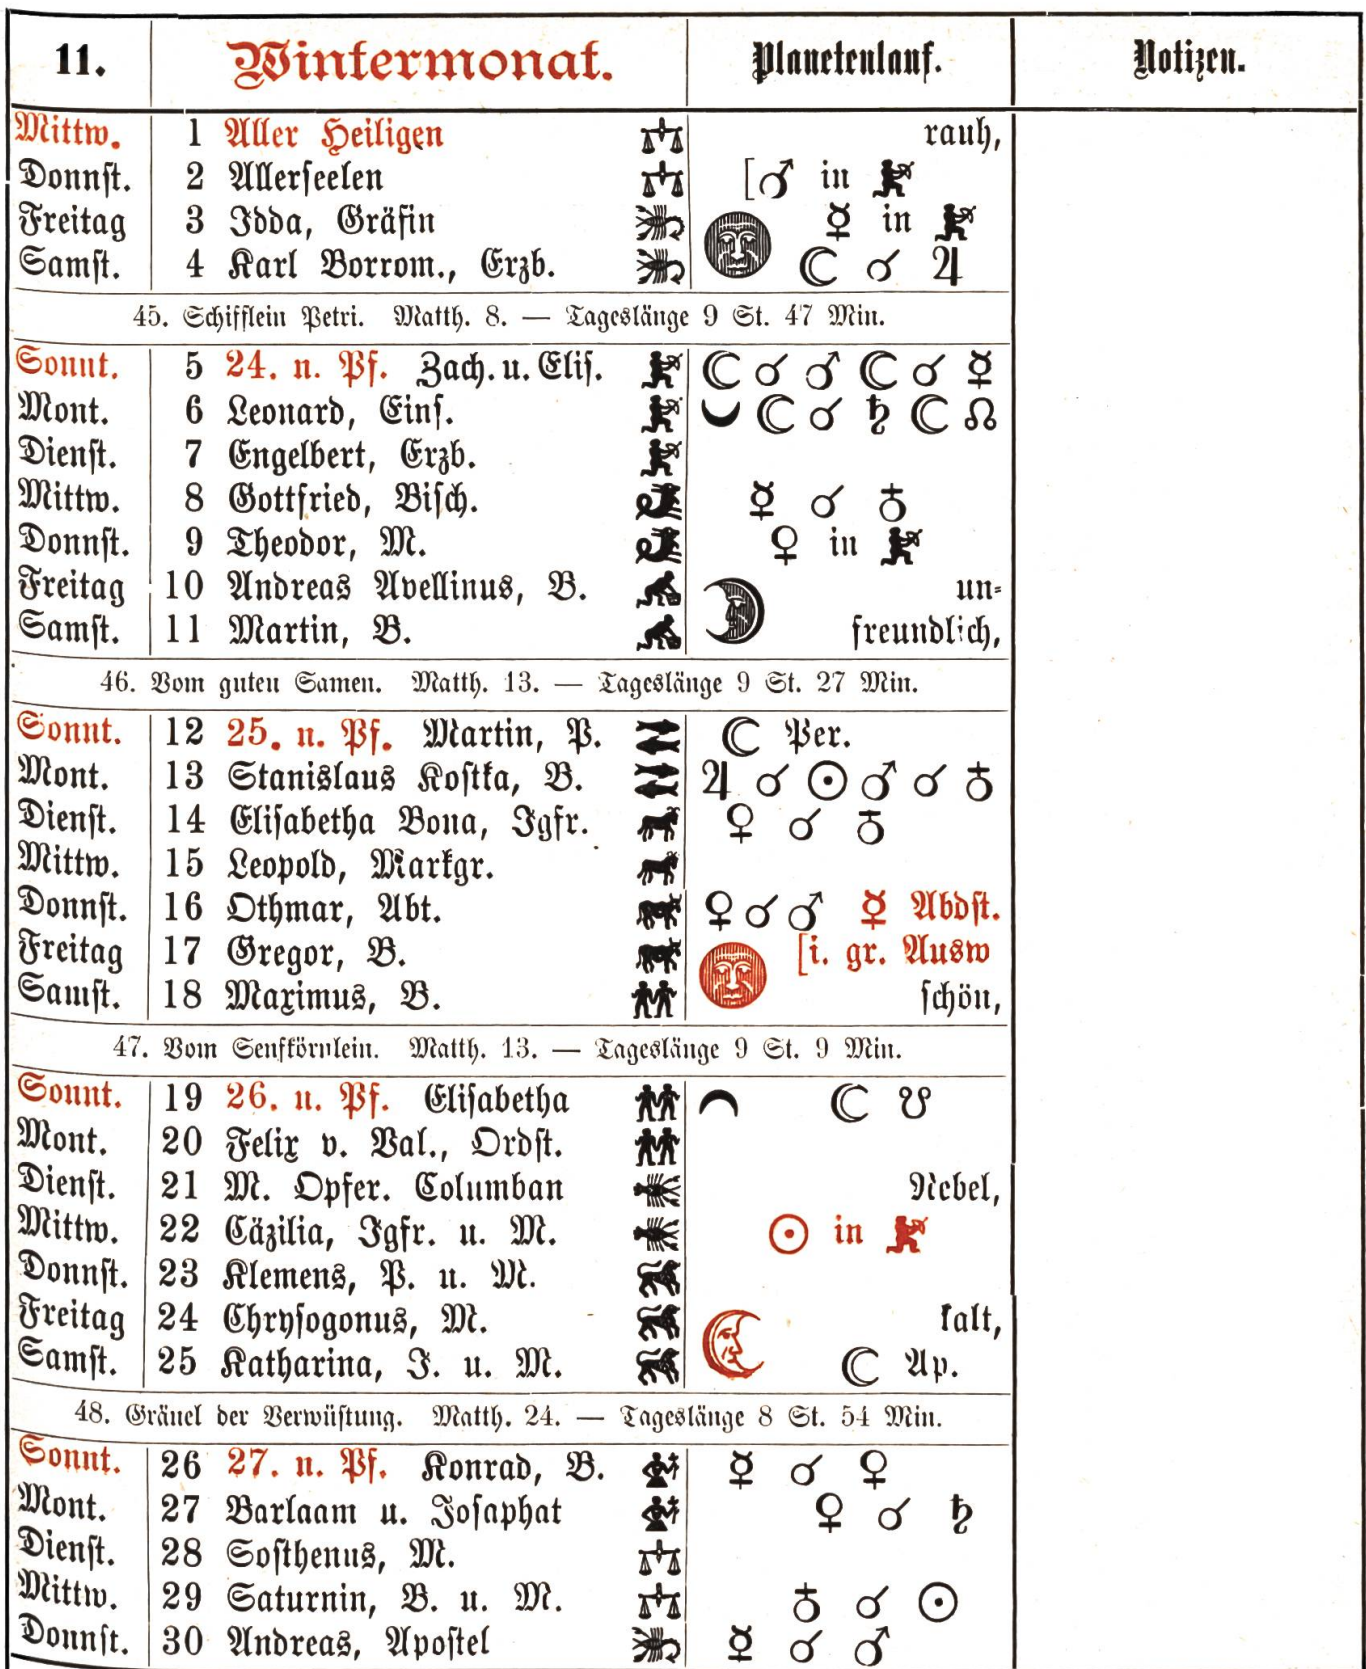 11. Wintermonat. Planetenlauf. Notizen.
Mittw. 1 Aller Heiligen rauh,
Donnſt. 2 Allerſeelen [♂ in
Freitag 3 Idda, Gräfin ☿ in
Samſt. 4 Karl Borrom., Erzb. ☾ ☌ ♃
45. Schifflein Petri. Matth. 8. — Tageslänge 9 St. 47 Min.
Sonnt. 5 24. n. Pf. Zach. u. Eliſ. ☾ ☌ ♂ ☾ ☌ ☿
Mont. 6 Leonard, Einſ. ☾ ☌ ♄ ☾ ☊
Dienſt. 7 Engelbert, Erzb.
Mittw. 8 Gottfried, Biſch. ☿ ☌ ♁
Donnſt. 9 Theodor, M. ♀ in
Freitag 10 Andreas Avellinus, B. un⸗
Samſt. 11 Martin, B. freundlich,
46. Vom guten Samen. Matth. 13. — Tageslänge 9 St. 27 Min.
Sonnt. 12 25. n. Pf. Martin, P. ☾ Per.
Mont. 13 Stanislaus Koſtka, B. ♃ ☌ ☉ ♂ ☌ ♁
Dienſt. 14 Eliſabetha Bona, Igfr. ♀ ☌ ♁
Mittw. 15 Leopold, Markgr.
Donnſt. 16 Othmar, Abt. ♀ ☌ ♂ ☿ Abdſt.
Freitag 17 Gregor, B. [i. gr. Ausw
Samſt. 18 Maximus, B. ſchön,
47. Vom Senfkörnlein. Matth. 13. — Tageslänge 9 St. 9 Min.
Sonnt. 19 26. n. Pf. Eliſabetha ☾ ☋
Mont. 20 Felix v. Val., Ordſt.
Dienſt. 21 M. Opfer. Columban Nebel,
Mittw. 22 Cäzilia, Igfr. u. M. ☉ in
Donnſt. 23 Klemens, P. u. M.
Freitag 24 Chryſogonus, M. kalt,
Samſt. 25 Katharina, J. u. M. ☾ Ap.
48. Gräuel der Verwüſtung. Matth. 24. — Tageslänge 8 St. 54 Min.
Sonnt. 26 27. n. Pf. Konrad, B. ☿ ☌ ♀
Mont. 27 Barlaam u. Joſaphat ♀ ☌ ♄
Dienſt. 28 Soſthenus, M.
Mittw. 29 Saturnin, B. u. M. ♁ ☌ ☉
Donnſt. 30 Andreas, Apoſtel ☿ ☌ ♂